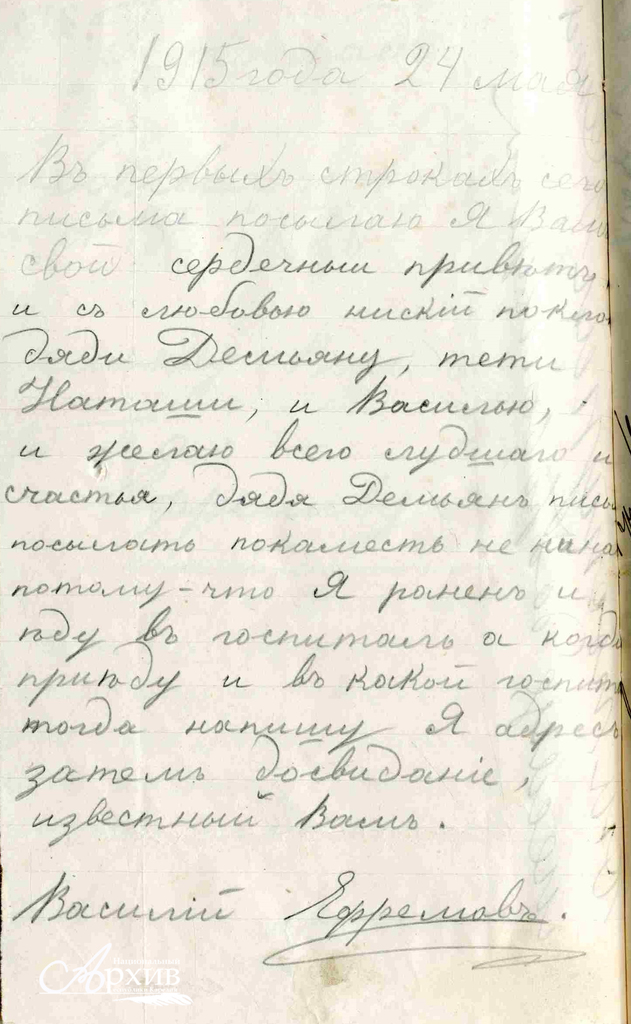 1915 года 24 мая
Въ первыхъ строкахъ сего
письма посылаю Я Вамъ
свой сердечный привѣтъ
и съ любовью ниский покло
дяди Демьяну, тети
Наташи, и Василью,
и желаю всего лудшаго и
счастья, дядя Демьянъ пись
посылать покаместь не нада
потому-что Я раненъ и
ѣду въ госпиталь а когда
приѣду и въ какой госпита
тогда напишу Я адресъ
затемъ досвидание,
известный Вамъ.
Василий Ефремовъ.
Национальный
Архив